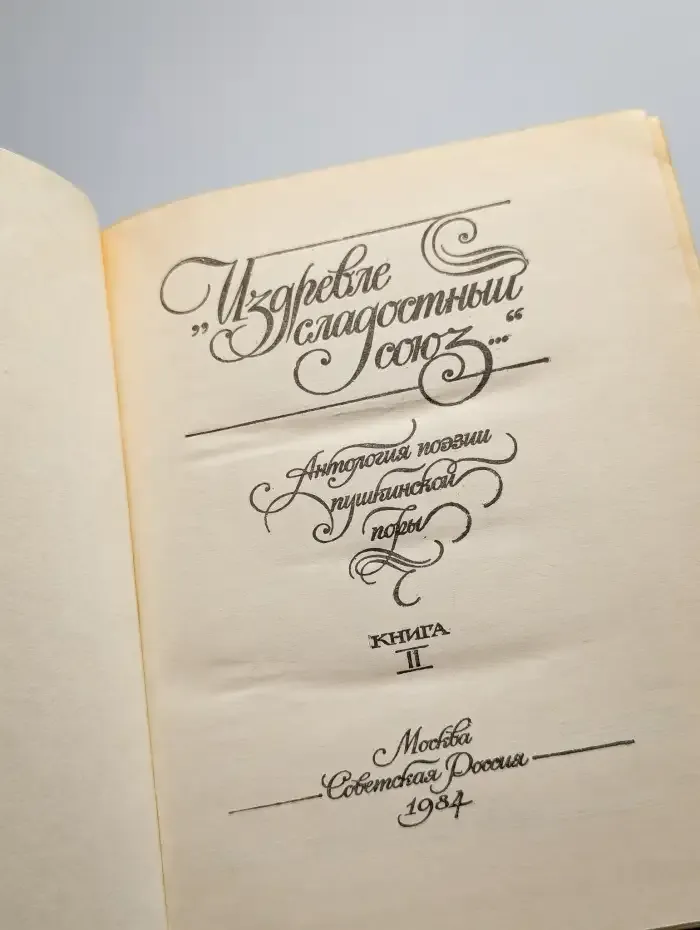 „Издревле
сладостный
союз...“
Антология поэзии
пушкинской
поры
КНИГА
II
Москва
Советская Россия
1984